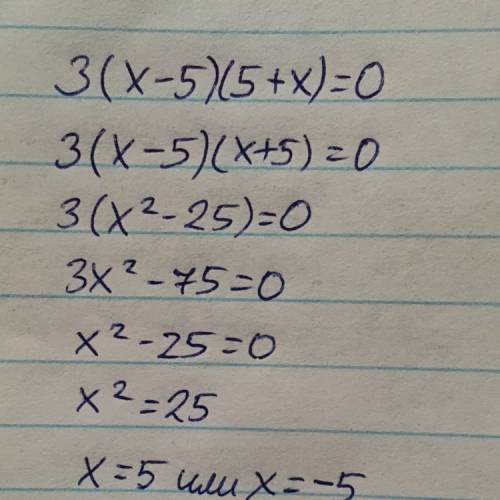 3(x-5)(5+x)=0
3(x-5)(x+5)=0
3(x²-25)=0
3x²-75=0
x²-25=0
x²=25
x=5 или x=-5